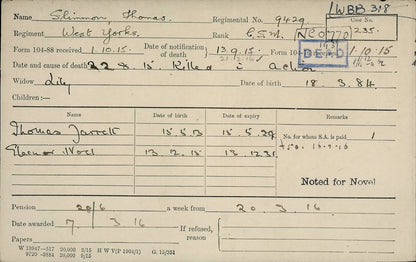 1WBB 318
Name Slinnon, Thomas. Regimental No. 9429 Case No.
Regiment West Yorks. Rank C.S.M. 235.
Form 104-88 received 1.10.15. Date of notification of death 13.9.15 Form 104- 1.10.15
DEAD
Date and cause of death 22 8 15 Killed in Action
Widow Lily Date of birth 18.3.84
Children:—
Name Date of birth Date of expiry Remarks
Thomas Jarrett 15.5.13 15.5.29 No. for whom S.A. is paid 1
Eleanor Noel 13.12.15 13.12.31
Noted for Novel
Pension 20/6 a week from 20.3.16
Date awarded 7 3 16 If refused, reason
W 13947—517 20,000 8/15 H W V(P 1904/1) G. 15/251
9720—5884 20,000 9/15